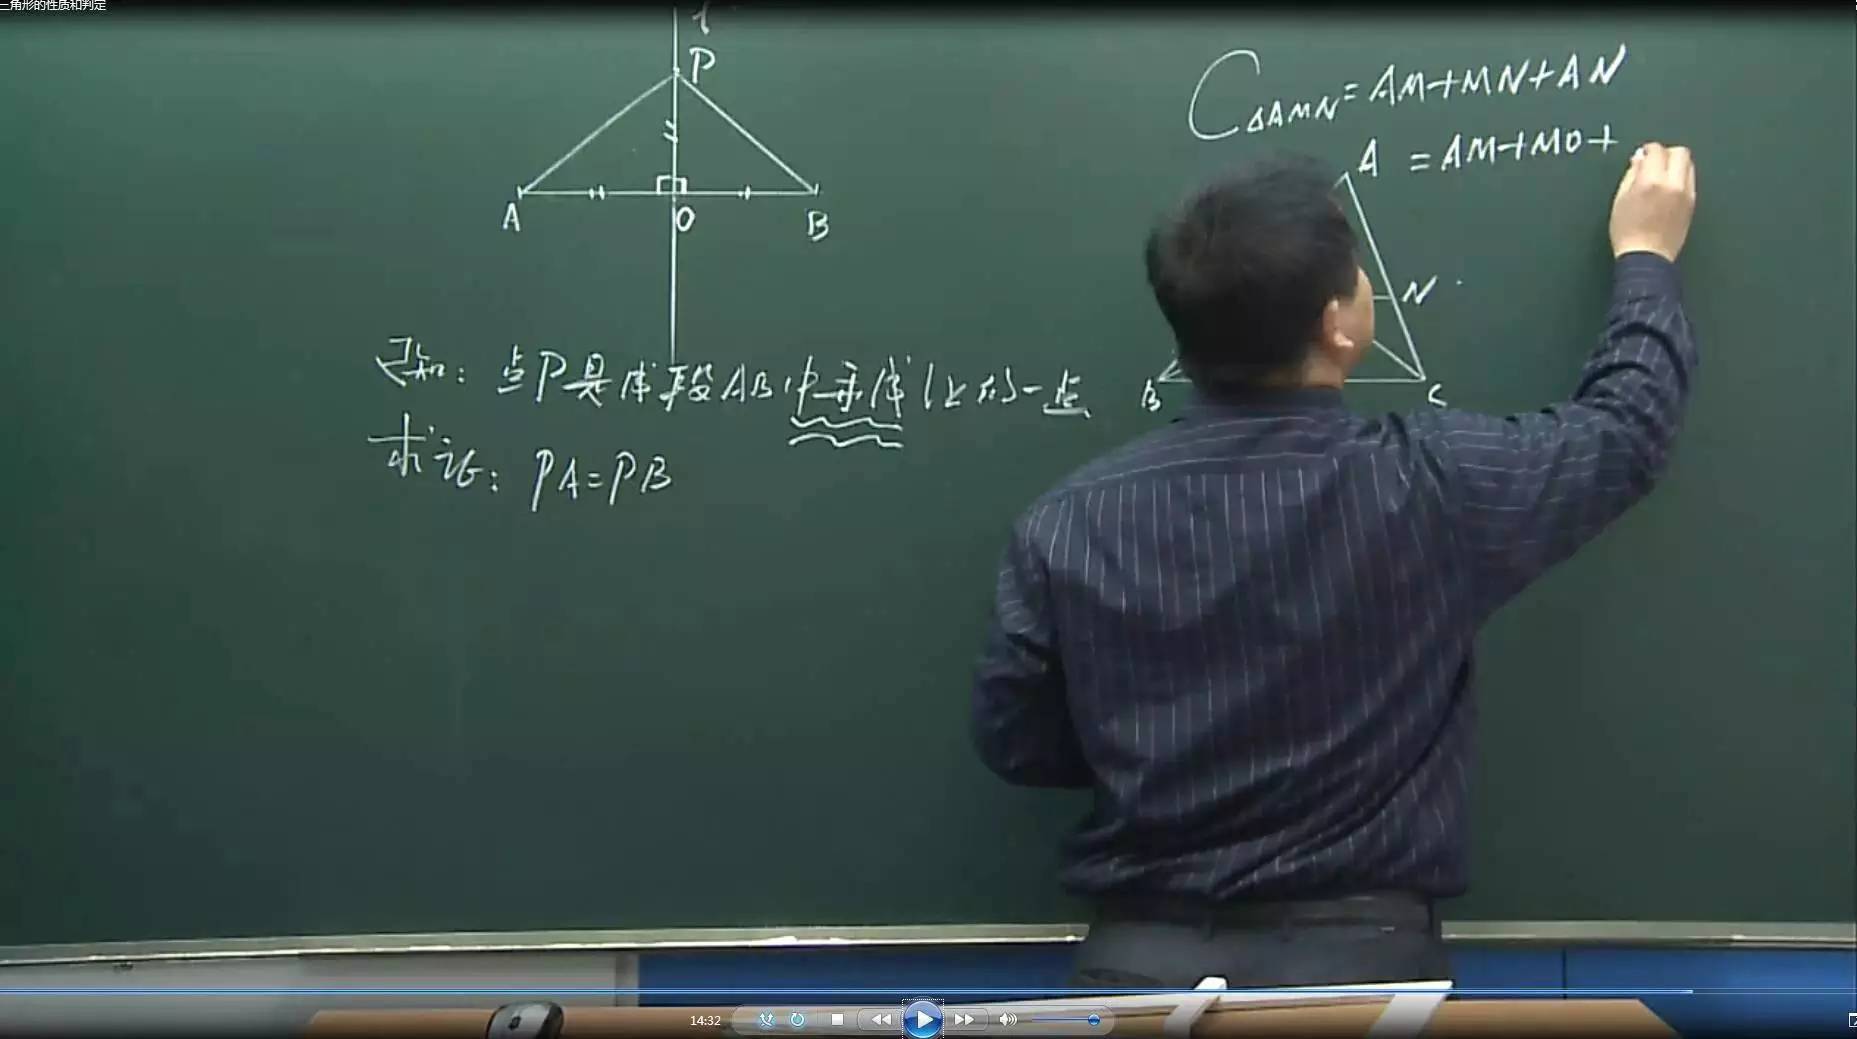 三角形的性质和判定
l
P
A
O
B
已知：点P是线段AB中垂线l上的一点
求证：PA=PB
C△AMN=AM+MN+AN
=AM+MO+
A
N
B
C
14:32